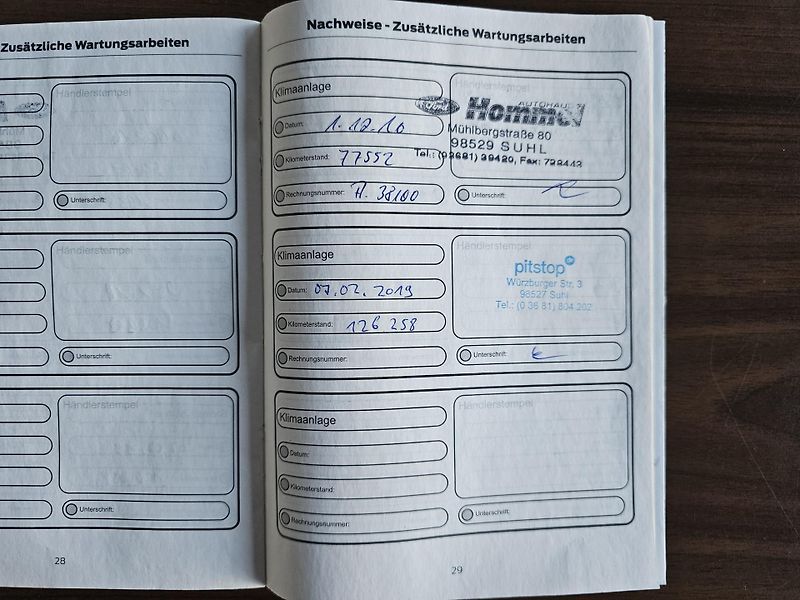 Zusätzliche Wartungsarbeiten
Händlerstempel
Unterschrift:
Händlerstempel
Unterschrift:
Händlerstempel
Unterschrift:
28
Nachweise - Zusätzliche Wartungsarbeiten
Klimaanlage
Datum:
Kilometerstand: 77552
Rechnungsnummer:
Händlerstempel
Ford AUTOHAUS
Hommel
Mühlbergstraße 80
98529 SUHL
Tel.: (03681) 39420, Fax: 728443
Unterschrift:
Klimaanlage
Datum: 07.02.2019
Kilometerstand: 126 258
Rechnungsnummer:
Händlerstempel
pitstop.de
Würzburger Str. 3
98527 Suhl
Tel.: (0 36 81) 804 202
Unterschrift:
Klimaanlage
Datum:
Kilometerstand:
Rechnungsnummer:
Händlerstempel
Unterschrift:
29